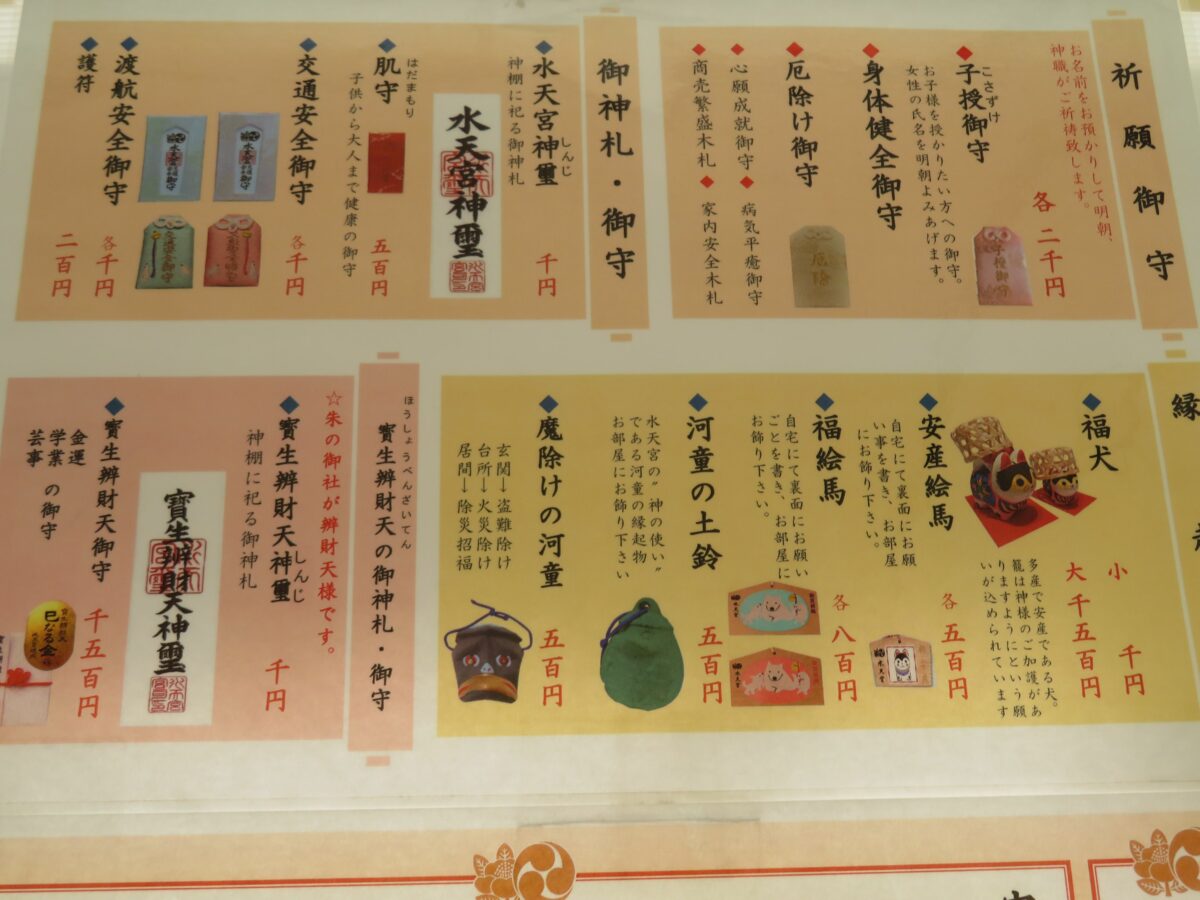 祈願御守
お名前をお預かりして明朝、
神職がご祈祷致します。
各 二千円
子授御守
こさずけ
お子様を授かりたい方への御守。
女性の氏名を明朝よみあげます。
子授御守
身体健全御守
厄除け御守
厄除
心願成就御守
病気平癒御守
商売繁盛木札
家内安全木札
御神札・御守
水天宮神璽
しんじ
神棚に祀る御神札
千円
水天宮神璽
肌守
はだまもり
子供から大人まで健康の御守
五百円
交通安全御守
各千円
渡航安全御守
各千円
護符
二百円
縁
福犬
小 千円
大 千五百円
多産で安産である犬。
籠は神様のご加護があ
りますようにという願
いが込められています
安産絵馬
自宅にて裏面にお願
い事を書き、お部屋
にお飾り下さい。
各 五百円
福絵馬
自宅にて裏面にお願い
ごとを書き、お部屋に
お飾り下さい。
各 八百円
河童の土鈴
水天宮の“神の使い”
である河童の縁起物
お部屋にお飾り下さい
五百円
魔除けの河童
玄関→盗難除け
台所→火災除け
居間→除災招福
五百円
寳生辨財天の御神札・御守
ほうしょうべんざいてん
☆朱の御社が辨財天様です。
寳生辨財天神璽
しんじ
神棚に祀る御神札
千円
寳生辨財天神璽
寳生辨財天御守
金運
学業 の御守
芸事
千五百円
巳なる金